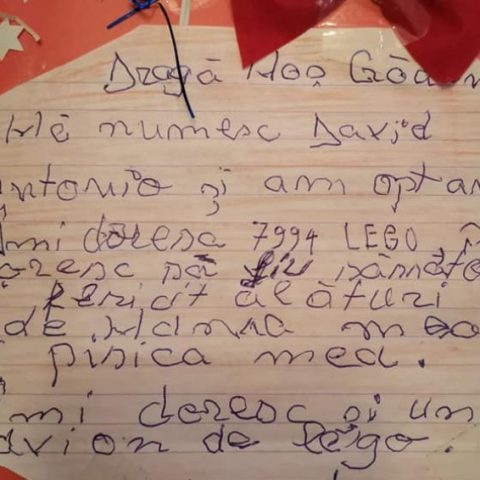 Dragă Moș Crăciun
Mă numesc David
Antonio și am opt an
Îmi doresc 7994 LEGO, î
doresc să fiu sănăto
fericit alături
de Mama mea
pisica mea.
Îmi doresc și un
avion de lego.